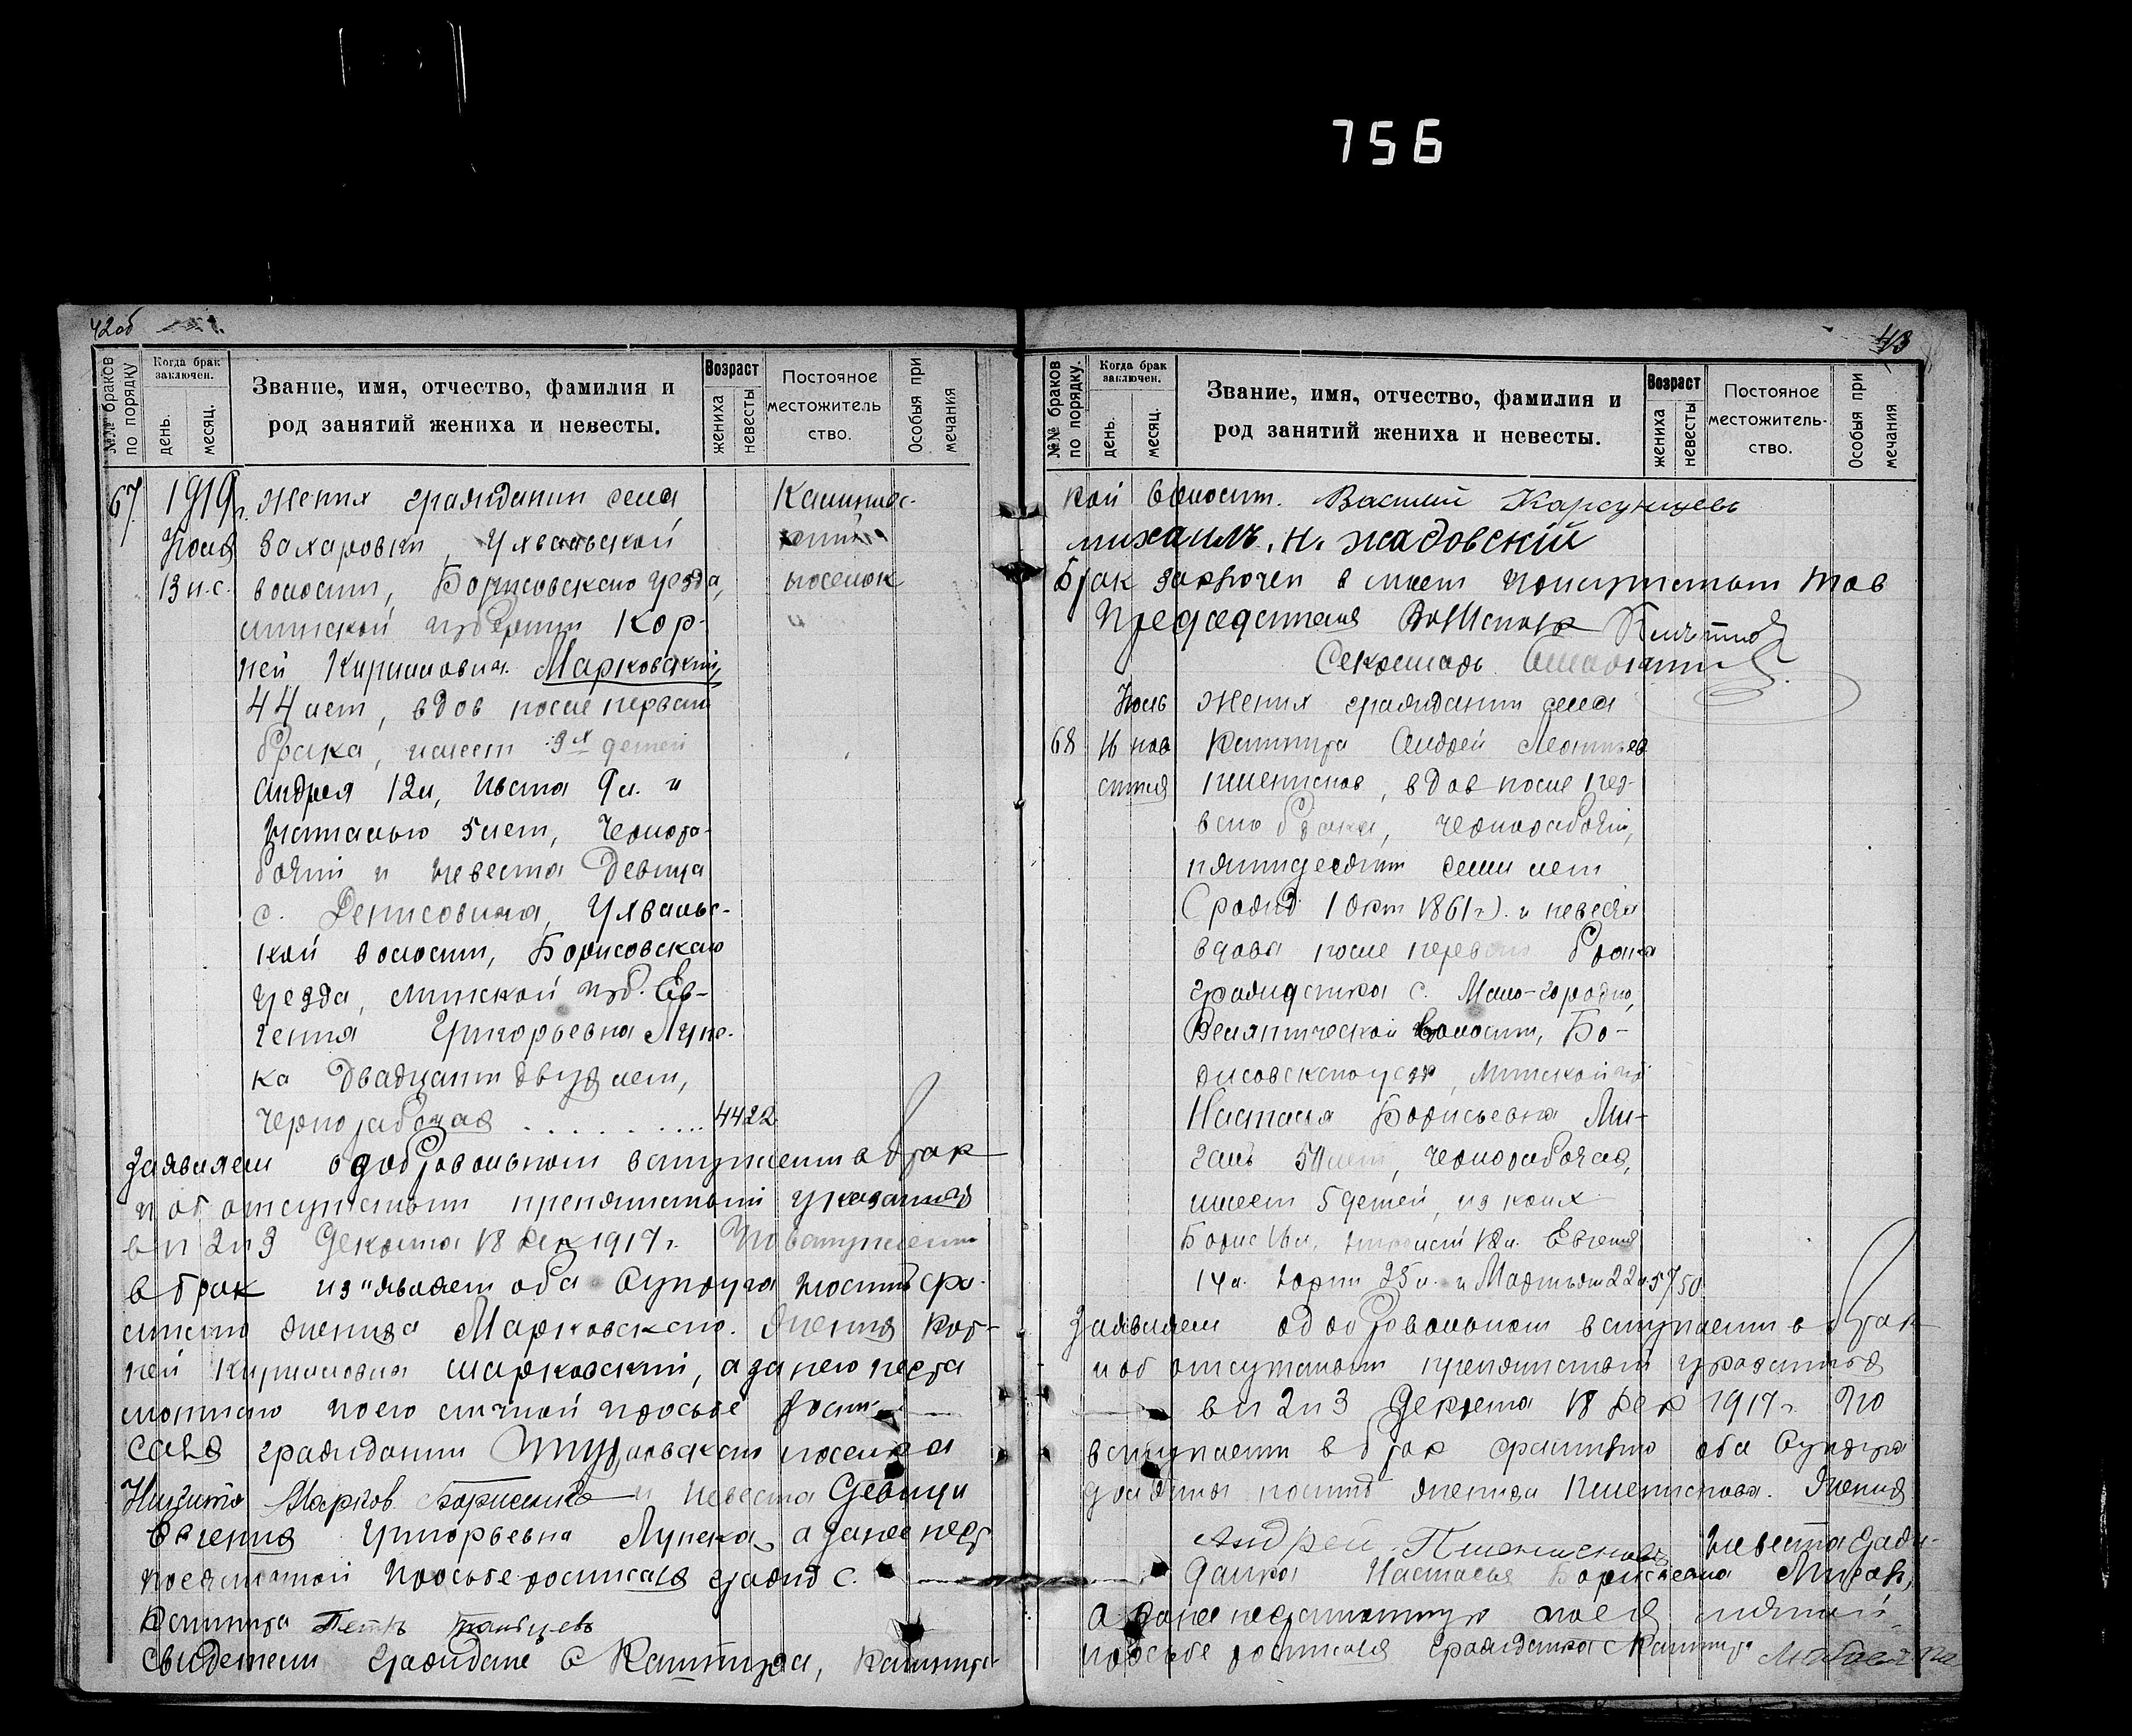 756
42об
№№ браков по порядку
Когда брак заключен.
день.
месяц.
Звание, имя, отчество, фамилия и
род занятий жениха и невесты.
Возраст
жениха
невесты
Постояное
местожитель
ство.
Особыя при
мечания
67 1919г. жених гражданин села
Июля Захаровки, Ухвальской
13 н.с. волости, Борисовского уезда,
поселок
минской губернии Кор-
ней Кириллович Марковский,
44 лет, вдов после первого
брака, имеет 3х детей
Андрея 12 л, 9 л. и
Наталью 5 лет, черпора-
бочий и невеста девица
с. Денисовича, Ухвальс-
кой волости, Борисовского
уезда, минской губ. Ев-
гения Григорьевна Лупе-
ка двадцати двух лет,
чернорабочая . . . . . . . . . . 44 22
Заявляем о добровольном вступлении в брак
и об отсутствии препятствий указанных
в п 2 и 3 декрета 18 дек 1917 г. По вступлении
в брак из"являем оба супруга носить фа-
милию жениха Марковского. Жених Кор-
ней Кириллович Марковский, а за него негра
мотного по его личной просьбе распи-
сался гражданин поселка
Никита Марков и невеста девица
Евгения Григорьевна Лупека, а за нее негр
по ея личной просьбе росписался гражд с.
Каштира Петръ
Свидетели граждане с Каштира, Каштирс
43
№№ браков по порядку.
Когда брак заключен.
день.
месяц.
Звание, имя, отчество, фамилия и
род занятий жениха и невесты.
Возраст
жениха
невесты
Постояное
местожитель-
ство.
Особыя при
мечания
кой волости. Василий Карсунцевъ
михаилъ. Н. жадовскій
Брак заключен в моем присутствии тов
Председателя
Секретарь
Июль жених гражданин села
68 16 нов Каштира Андрей Леонтьев
стиля Пшенисков, вдов после пер-
ваго брака, чернорабочий,
пятидесяти семи лет
(рожд 1 окт 1861 г). и невеста
вдова после перваго брака
гражданка с. Мало-городно,
волости, Бо-
рисовского уезд, Минской губ
Настасья Борисьевна Ми-
галь 50 лет, чернорабочая,
имеет 5 детей, из коих
Борис 16 л, 18 л. Евгения
14 л. 25 л. и 22 л. 57 50
Заявляем о добровольном вступлении в брак
и об отсутствии препятствий указанных
в п 2 и 3 декрета 18 дек 1917 г. По
вступлении в брак фамилию оба супруга
должны носить жениха Пшенискова. Жених
Андрей Пшенисковъ Невеста граж-
данка Настасья Борисьевна Мигаль,
а за нее неграмотную по ея личной
просьбе росписался гражданка с Каштира